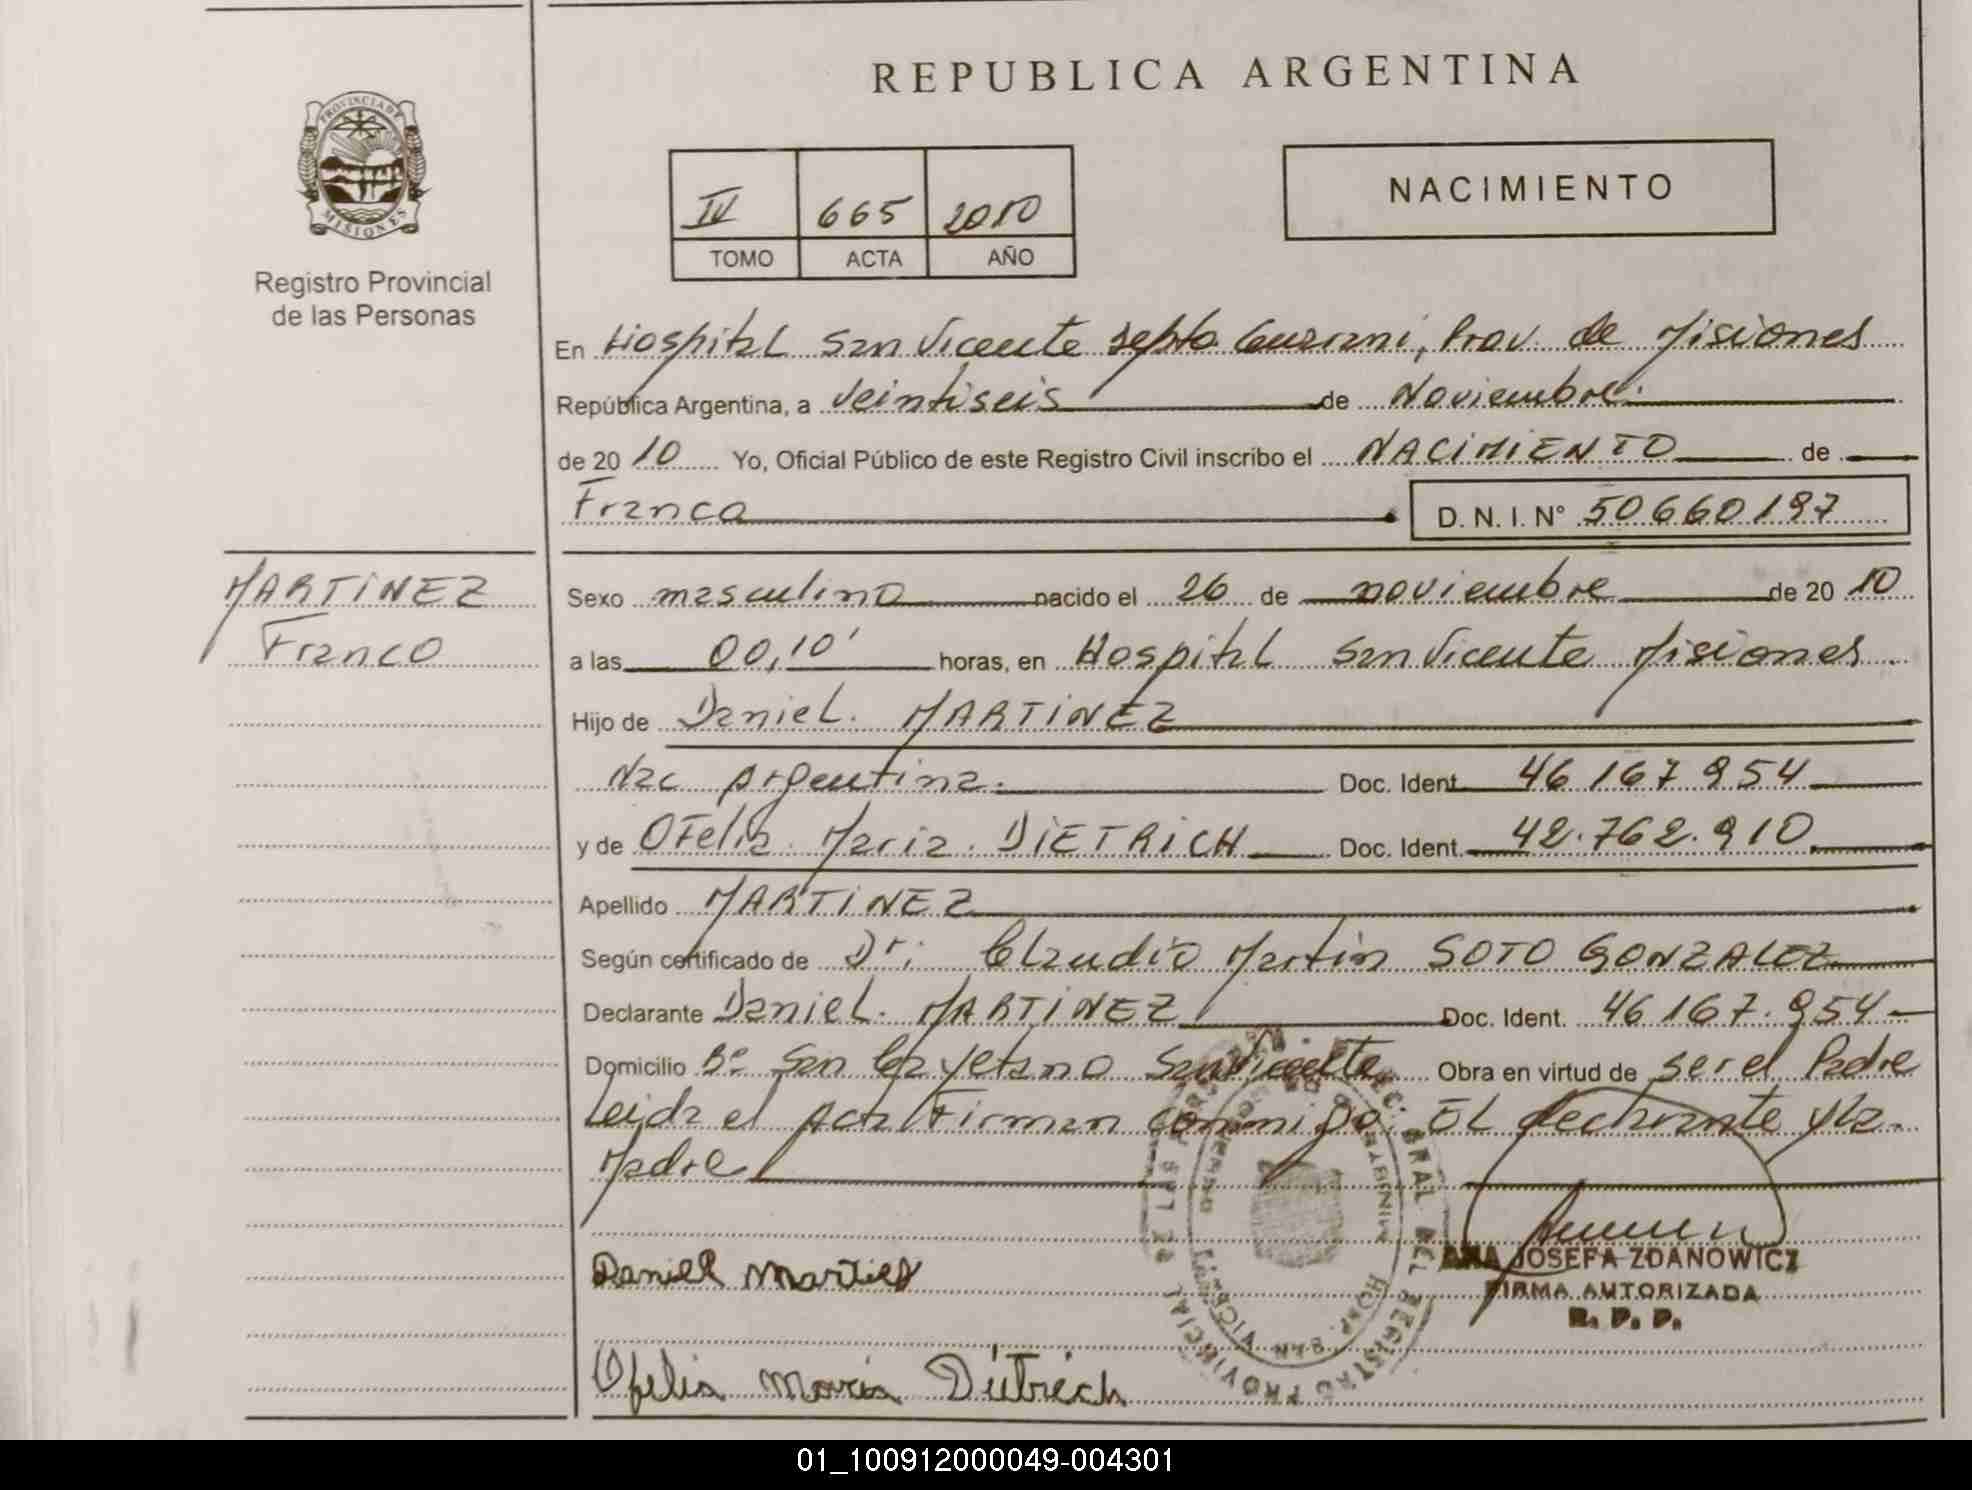 REPUBLICA ARGENTINA
PROVINCIA DE
MISIONES
Registro Provincial
de las Personas
IV 665 2010
TOMO ACTA AÑO
NACIMIENTO
En Hospital San Vicente Depto Guarani, Prov. de Misiones
República Argentina, a veintiseis de Noviembre
de 20 10 Yo, Oficial Público de este Registro Civil inscribo el NACIMIENTO de
Franco
D. N. I. N° 50660197
MARTINEZ
Franco
Sexo masculino nacido el 26 de noviembre de 20 10
a las 00,10' horas, en Hospital San Vicente Misiones
Hijo de Daniel. MARTINEZ
Nac Argentina. Doc. Ident. 46.167.954
y de OFelia Maria. DIETRICH Doc. Ident. 42.762.910
Apellido MARTINEZ
Según certificado de Dr; Claudio Martin SOTO GONZALEZ
Declarante Daniel. MARTINEZ Doc. Ident. 46.167.954
Domicilio B° San Cayetano San Vicente Obra en virtud de ser el Padre
Leida el Acta Firman conmigo. El declarante y la
Madre
Daniel Marties
ANA JOSEFA ZDANOWICZ
FIRMA AUTORIZADA
R. P. P.
Ofelia Maria Dietrich
HOSP. SAN VICENTE
01_100912000049-004301